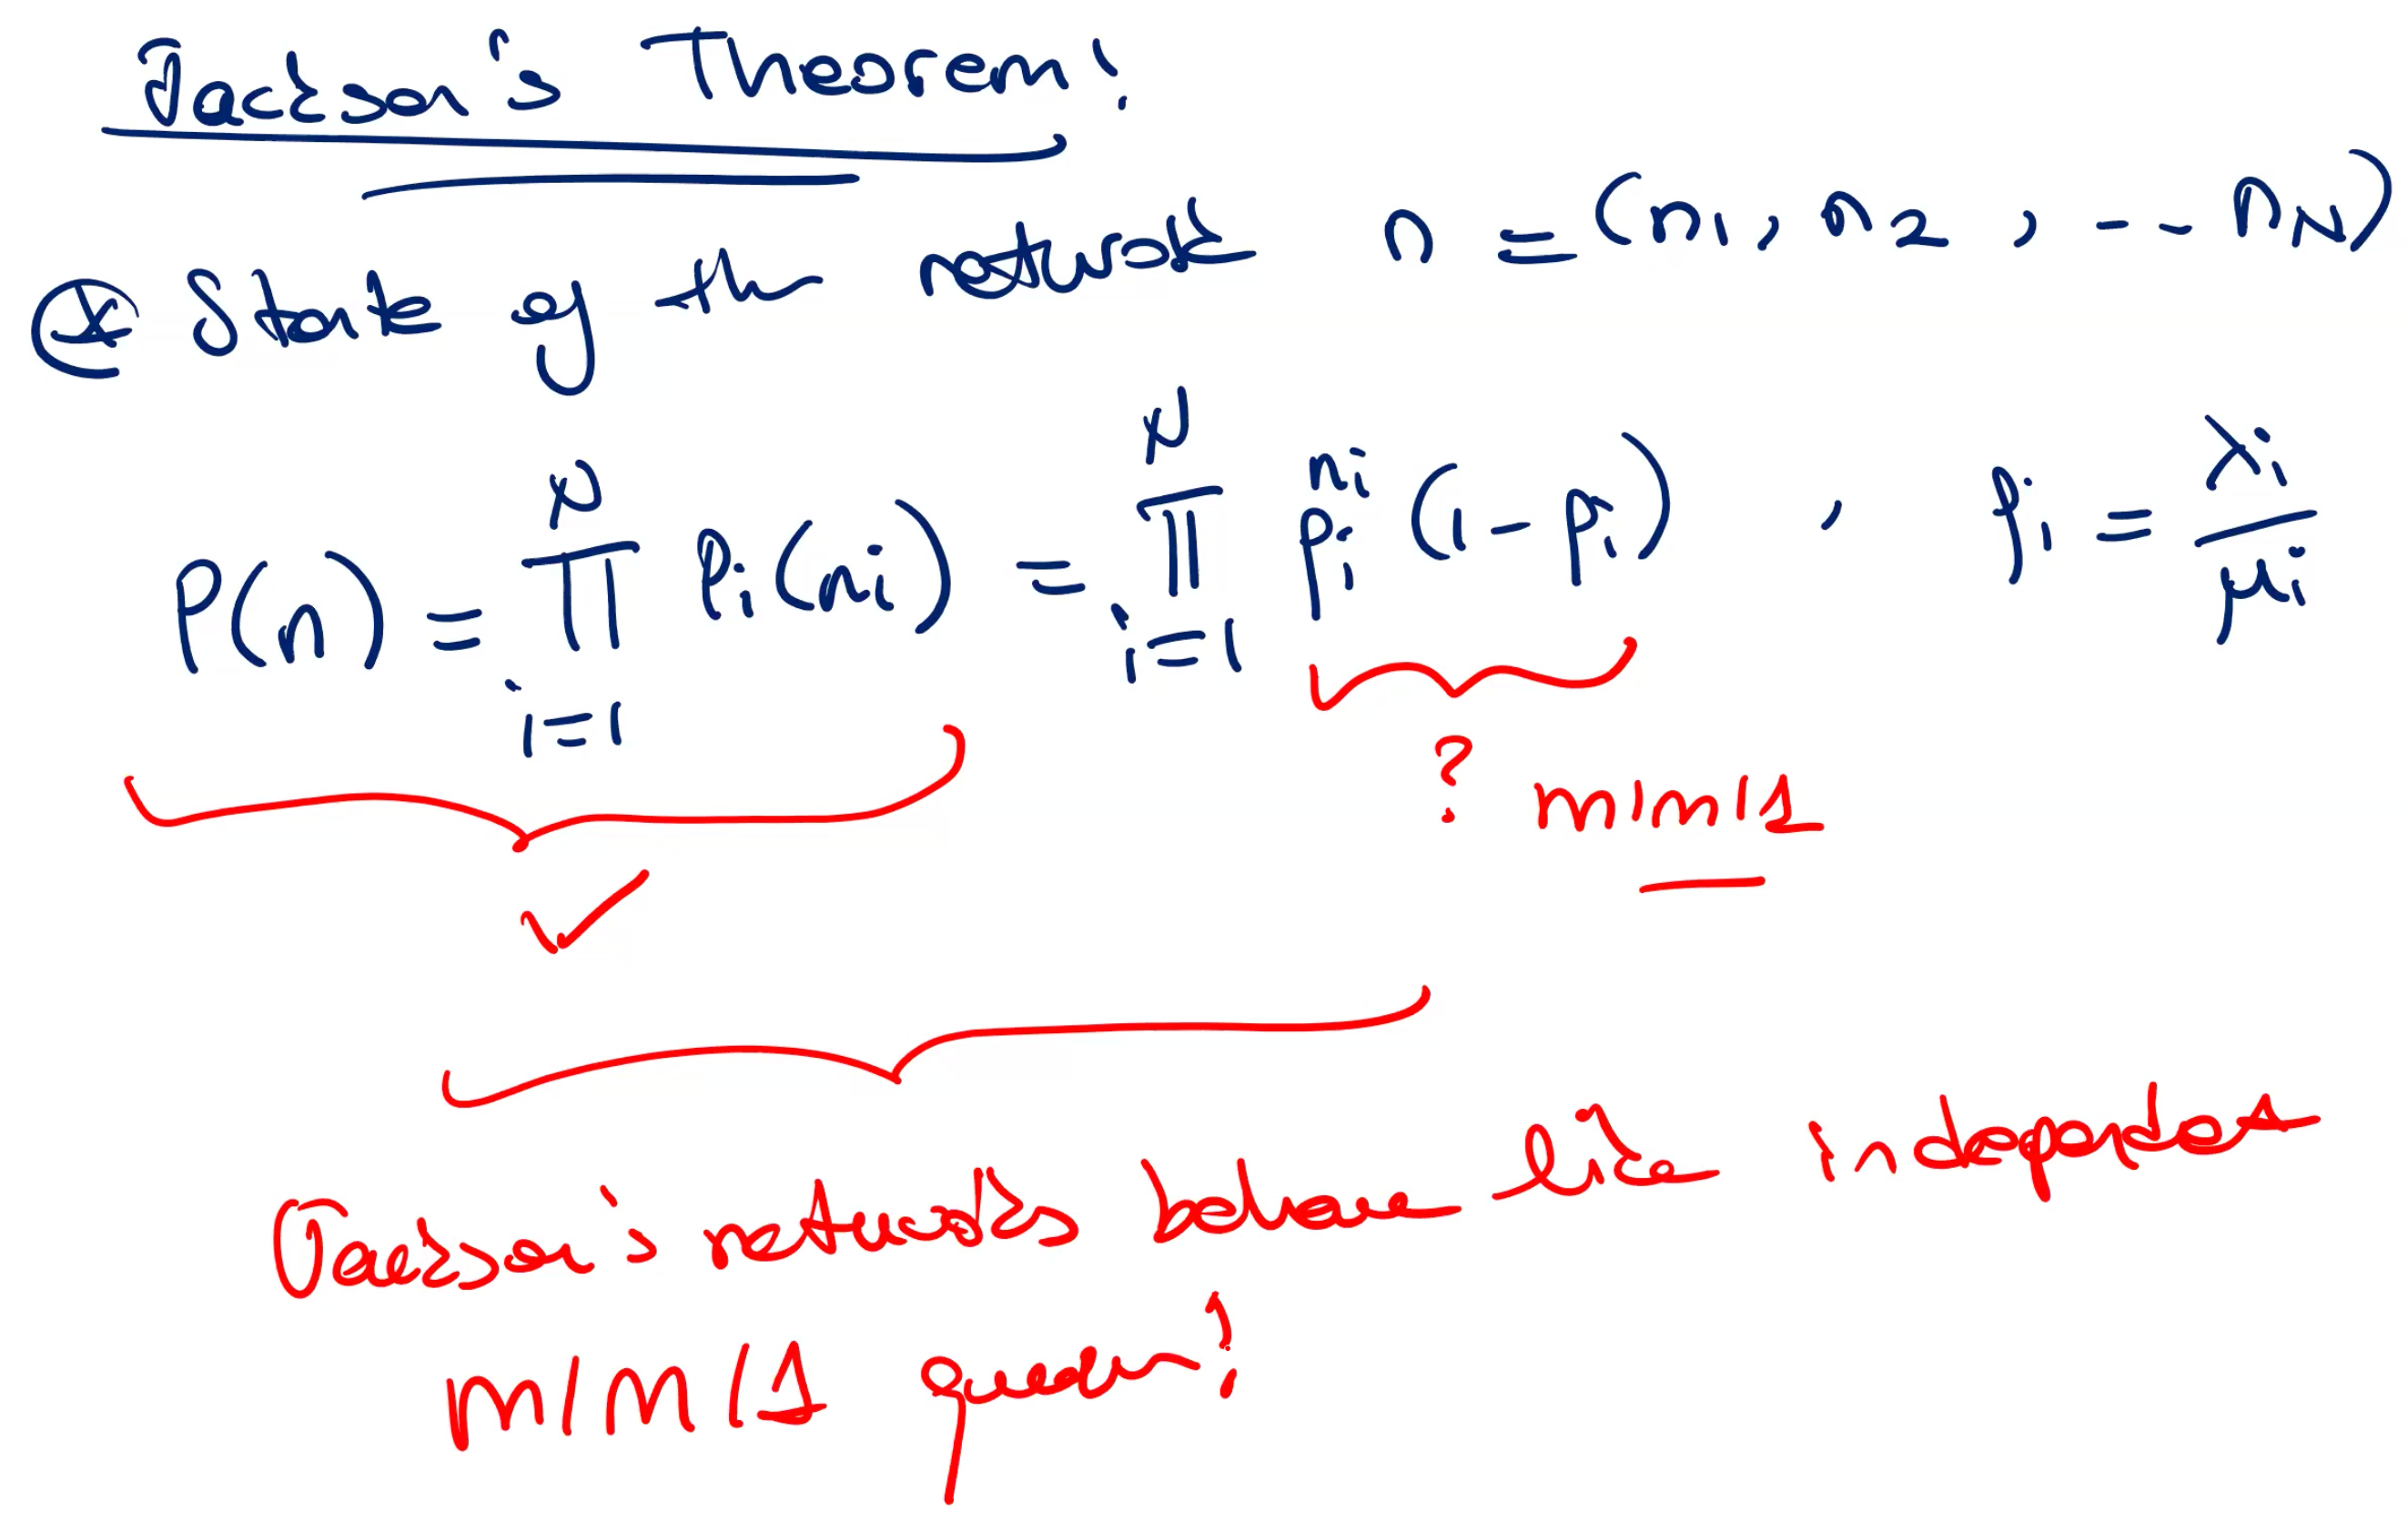 Jackson's Theorem:
⊛ State of the network n = (n1, n2, -- nN)
P(n) = ∏_{i=1}^{N} Pi(ni) = ∏_{i=1}^{N} ρi^{ni} (1-ρi) , ρi = λi/μi
? M/M/1
✓
Jackson's networks behave like independent
M/M/1 queues!